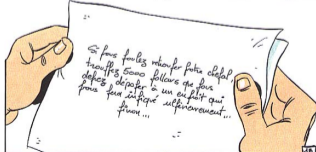 Si fous foulez retroufer fotre chefal,
trouffez 5000 follars que fous
defez dépoſer à un endroit qui
fous sera intiqué ultérieurement...
sinon...